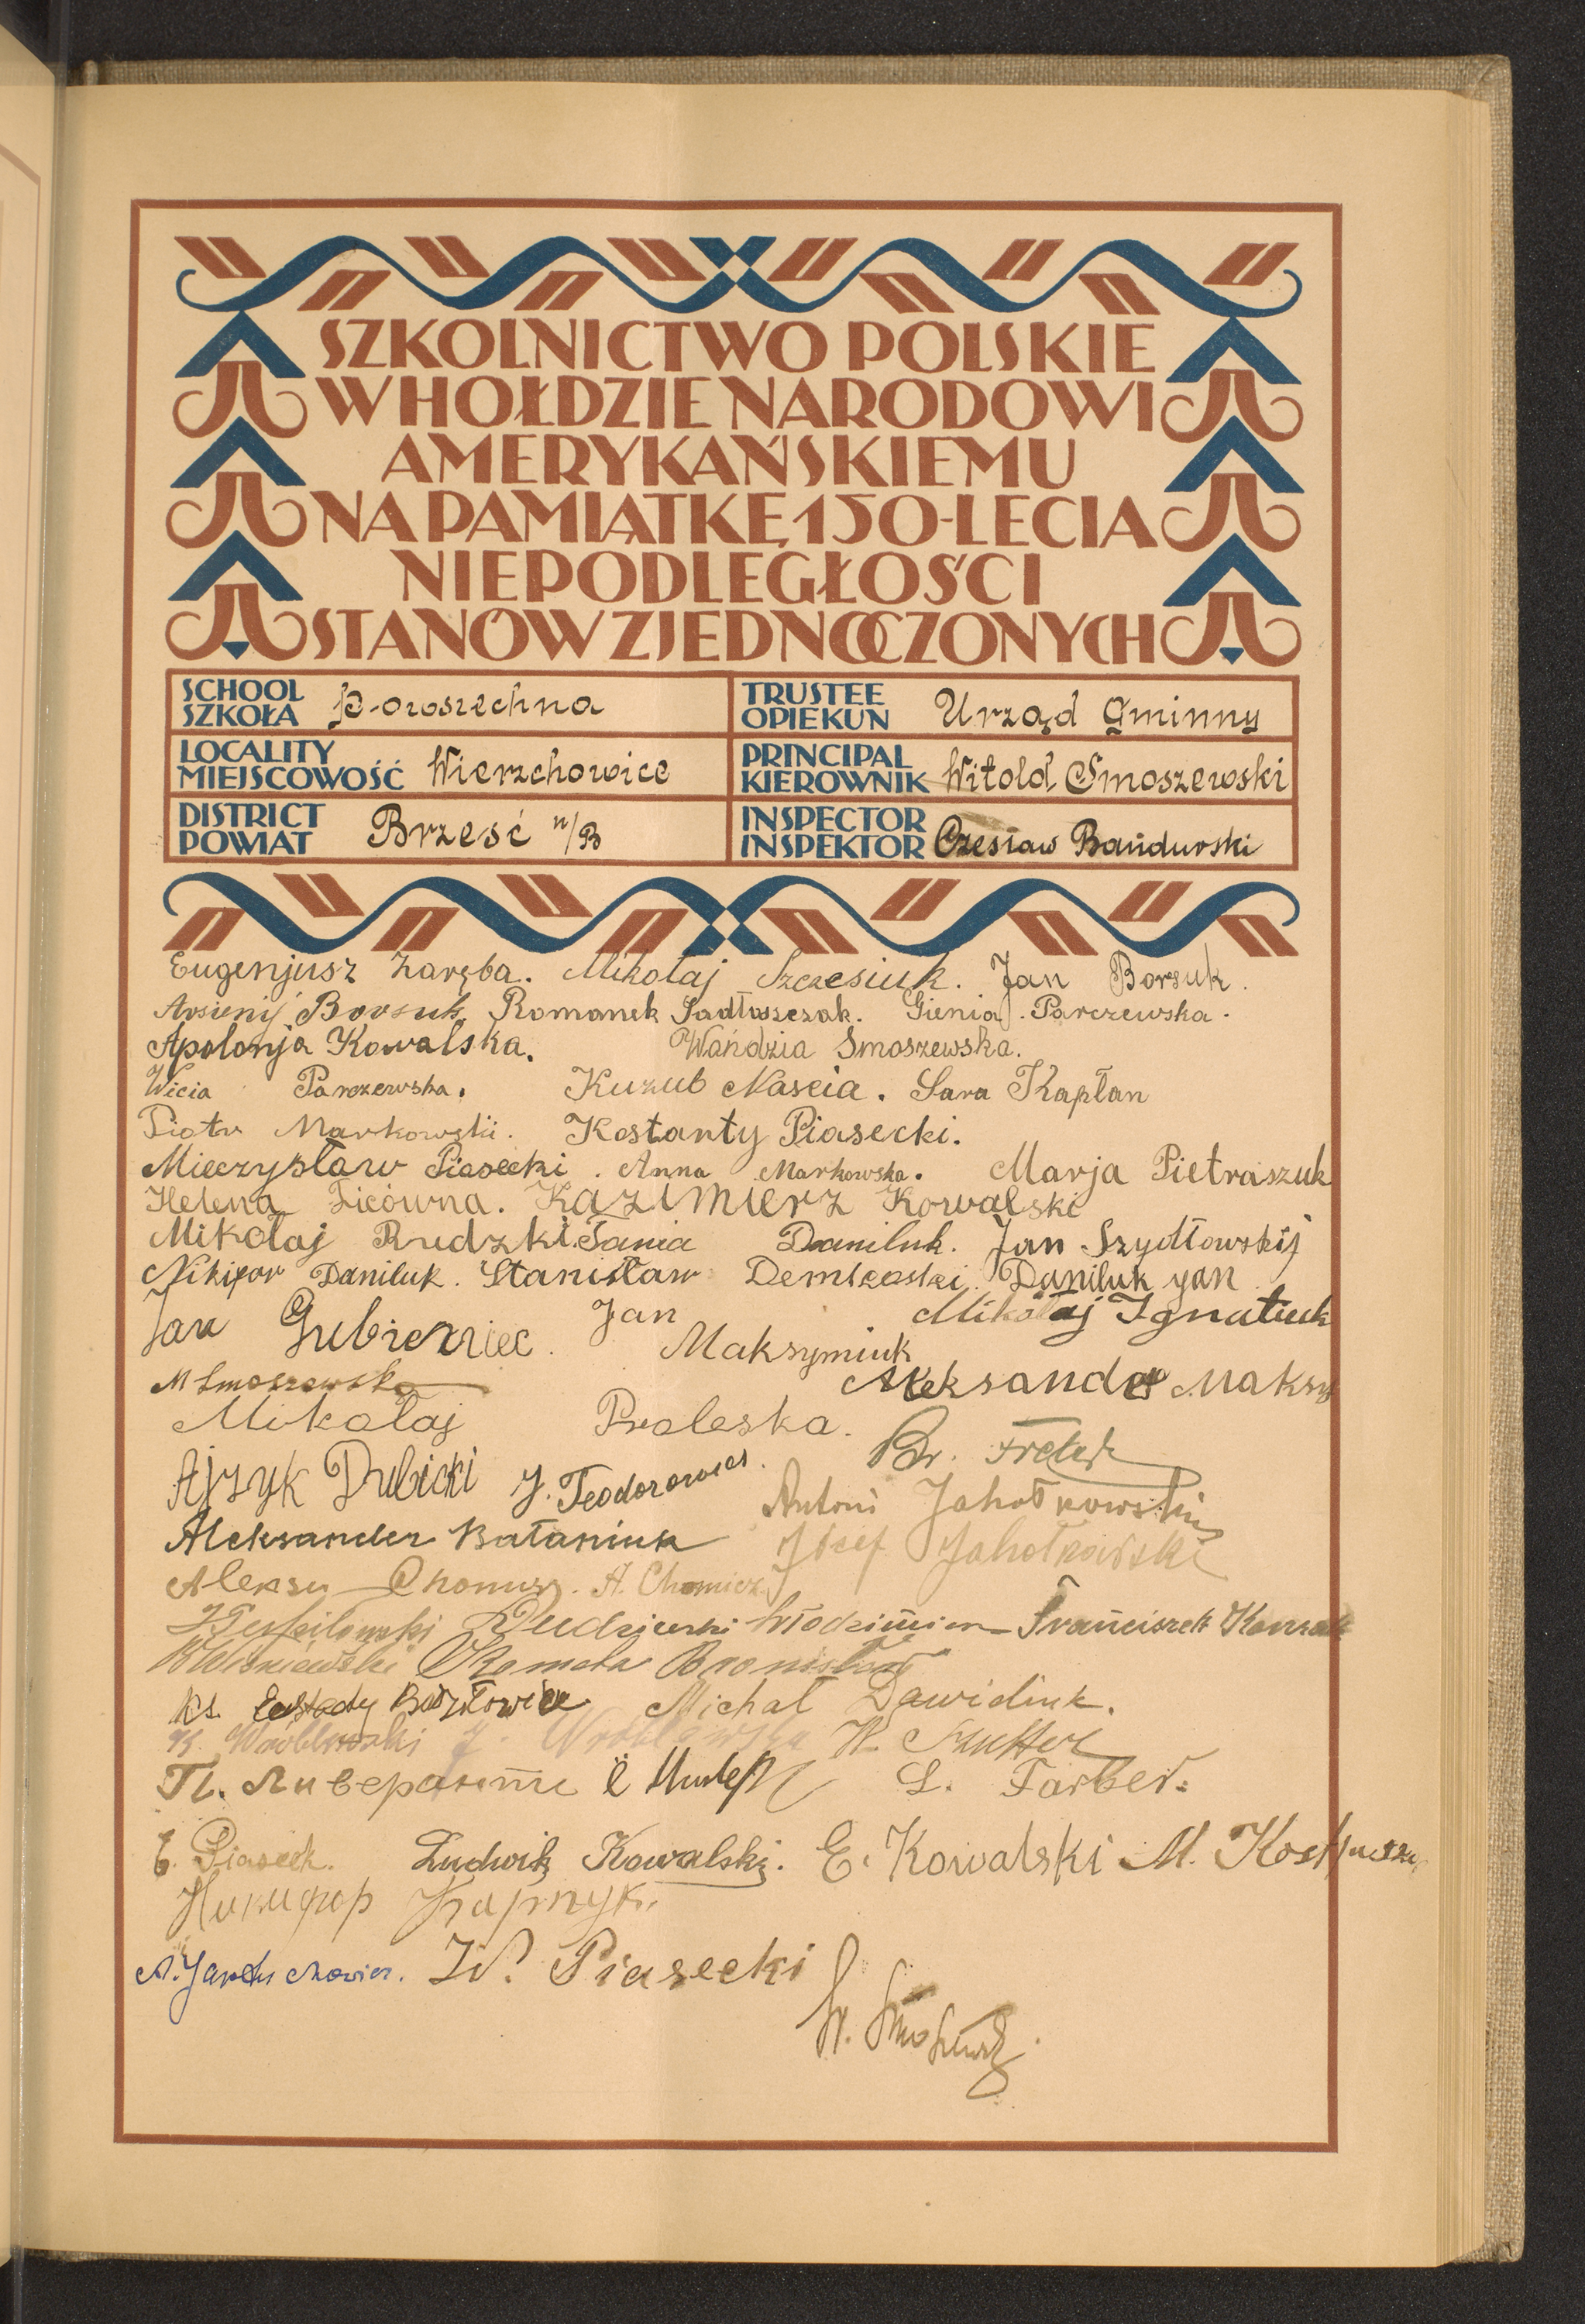 SZKOLNICTWO POLSKIE
W HOŁDZIE NARODOWI
AMERYKAŃSKIEMU
NA PAMIĄTKĘ 150-LECIA
NIEPODLEGŁOŚCI
STANÓW ZJEDNOCZONYCH
SCHOOL
SZKOŁA powszechna
TRUSTEE
OPIEKUN Urząd Gminny
LOCALITY
MIEJSCOWOŚĆ Wierzchowice
PRINCIPAL
KIEROWNIK Witold Smoszewski
DISTRICT
POWIAT Brześć n/B
INSPECTOR
INSPEKTOR Czesław Bańdurski
Eugenjusz Zaręba. Mikołaj Szczesiuk. Jan Borsuk.
Arsienij Borsuk. Romanek Sadłoszczak. Gienia Parczewska.
Apolonja Kowalska. Wańdzia Smoszewska.
Wicia Parczewska. Kuzub Nascia. Sara Kapłan
Piotr Markowski. Kostanty Piasecki.
Mieczysław Piasecki. Anna Markowska. Marja Pietraszuk
Helena Ficówna. Kazimierz Kowalski
Mikołaj Rudzki. Tania Daniluk. Jan Szydłowskij
Nikifor Daniluk. Stanisław Demkoski. Daniluk yan
Jan Gubierniec. Jan Maksymiuk Mikołaj Ignatiuk
M Smoszewska Aleksander Maksy
Mikołaj Proleska.
Ajzyk Dubicki J. Teodorowicz. Br.
Antoni Jahołkowski
Aleksander Bataniuk Józef Jahołkowski
Aleksy A. Chomicz
Włodzimierz Franciszek
B Wiśniewski Bronisław
Ks. Michał Dawidiuk.
K. Wróblewski J. Wróblewska K.
L. Farber.
E. Piaseck. Ludwik Kowalski. E. Kowalski M.
Никифор
W. Piasecki
W.